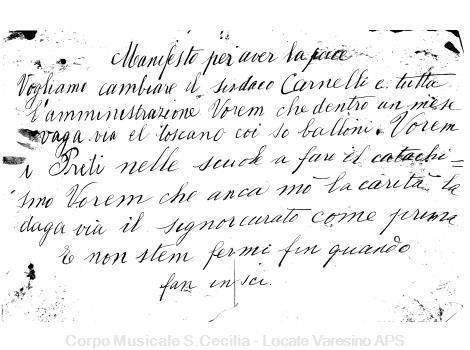 Manifesto per aver la pace
Vogliamo cambiare il sindaco Carnelli e tutta
l'amministrazione Vorem che dentro un mese
vaga via el toscano coi so balloni. Vorem
i Preti nelle scuole a fare il catechi=
smo Vorem che anca mò la carità la
daga via il signor curato come prima
E non stem fermi fin quando
fan insci.
Corpo Musicale S.Cecilia - Locate Varesino APS